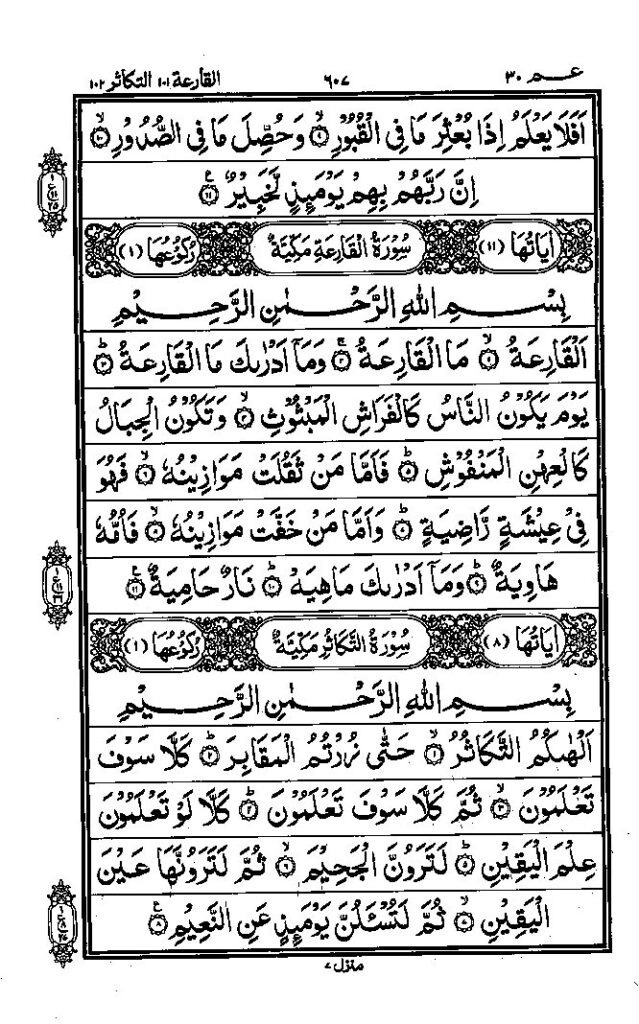 عـم ٣٠
٦٠٧
القارعة ١٠١ التكاثر ١٠٢
اَفَلَا يَعْلَمُ اِذَا بُعْثِرَ مَا فِى الْقُبُوْرِ ۙ﴿٩﴾ وَحُصِّلَ مَا فِى الصُّدُوْرِ ۙ﴿١٠﴾
اِنَّ رَبَّهُمْ بِهِمْ يَوْمَىِٕذٍ لَّخَبِيْرٌ ﴿١١﴾
اٰيَاتُهَا (١١) سُوْرَةُ الْقَارِعَةِ مَكِّيَّةٌ رُكُوْعُهَا (١)
بِسْمِ اللّٰهِ الرَّحْمٰنِ الرَّحِيْمِ
اَلْقَارِعَةُ ۙ﴿١﴾ مَا الْقَارِعَةُ ۚ﴿٢﴾ وَمَاۤ اَدْرٰىكَ مَا الْقَارِعَةُ ؕ﴿٣﴾
يَوْمَ يَكُوْنُ النَّاسُ كَالْفَرَاشِ الْمَبْثُوْثِ ۙ﴿٤﴾ وَتَكُوْنُ الْجِبَالُ
كَالْعِهْنِ الْمَنْفُوْشِ ؕ﴿٥﴾ فَاَمَّا مَنْ ثَقُلَتْ مَوَازِيْنُهٗ ۙ﴿٦﴾ فَهُوَ
فِىْ عِيْشَةٍ رَّاضِيَةٍ ؕ﴿٧﴾ وَاَمَّا مَنْ خَفَّتْ مَوَازِيْنُهٗ ۙ﴿٨﴾ فَاُمُّهٗ
هَاوِيَةٌ ؕ﴿٩﴾ وَمَاۤ اَدْرٰىكَ مَاهِيَهْ ؕ﴿١٠﴾ نَارٌ حَامِيَةٌ ﴿١١﴾
اٰيَاتُهَا (٨) سُوْرَةُ التَّكَاثُرِ مَكِّيَّةٌ رُكُوْعُهَا (١)
بِسْمِ اللّٰهِ الرَّحْمٰنِ الرَّحِيْمِ
اَلْهٰىكُمُ التَّكَاثُرُ ۙ﴿١﴾ حَتّٰى زُرْتُمُ الْمَقَابِرَ ؕ﴿٢﴾ كَلَّا سَوْفَ
تَعْلَمُوْنَ ۙ﴿٣﴾ ثُمَّ كَلَّا سَوْفَ تَعْلَمُوْنَ ؕ﴿٤﴾ كَلَّا لَوْ تَعْلَمُوْنَ
عِلْمَ الْيَقِيْنِ ؕ﴿٥﴾ لَتَرَوُنَّ الْجَحِيْمَ ۙ﴿٦﴾ ثُمَّ لَتَرَوُنَّهَا عَيْنَ
الْيَقِيْنِ ۙ﴿٧﴾ ثُمَّ لَتُسْـَٔلُنَّ يَوْمَىِٕذٍ عَنِ النَّعِيْمِ ﴿٨﴾
منزل ٧